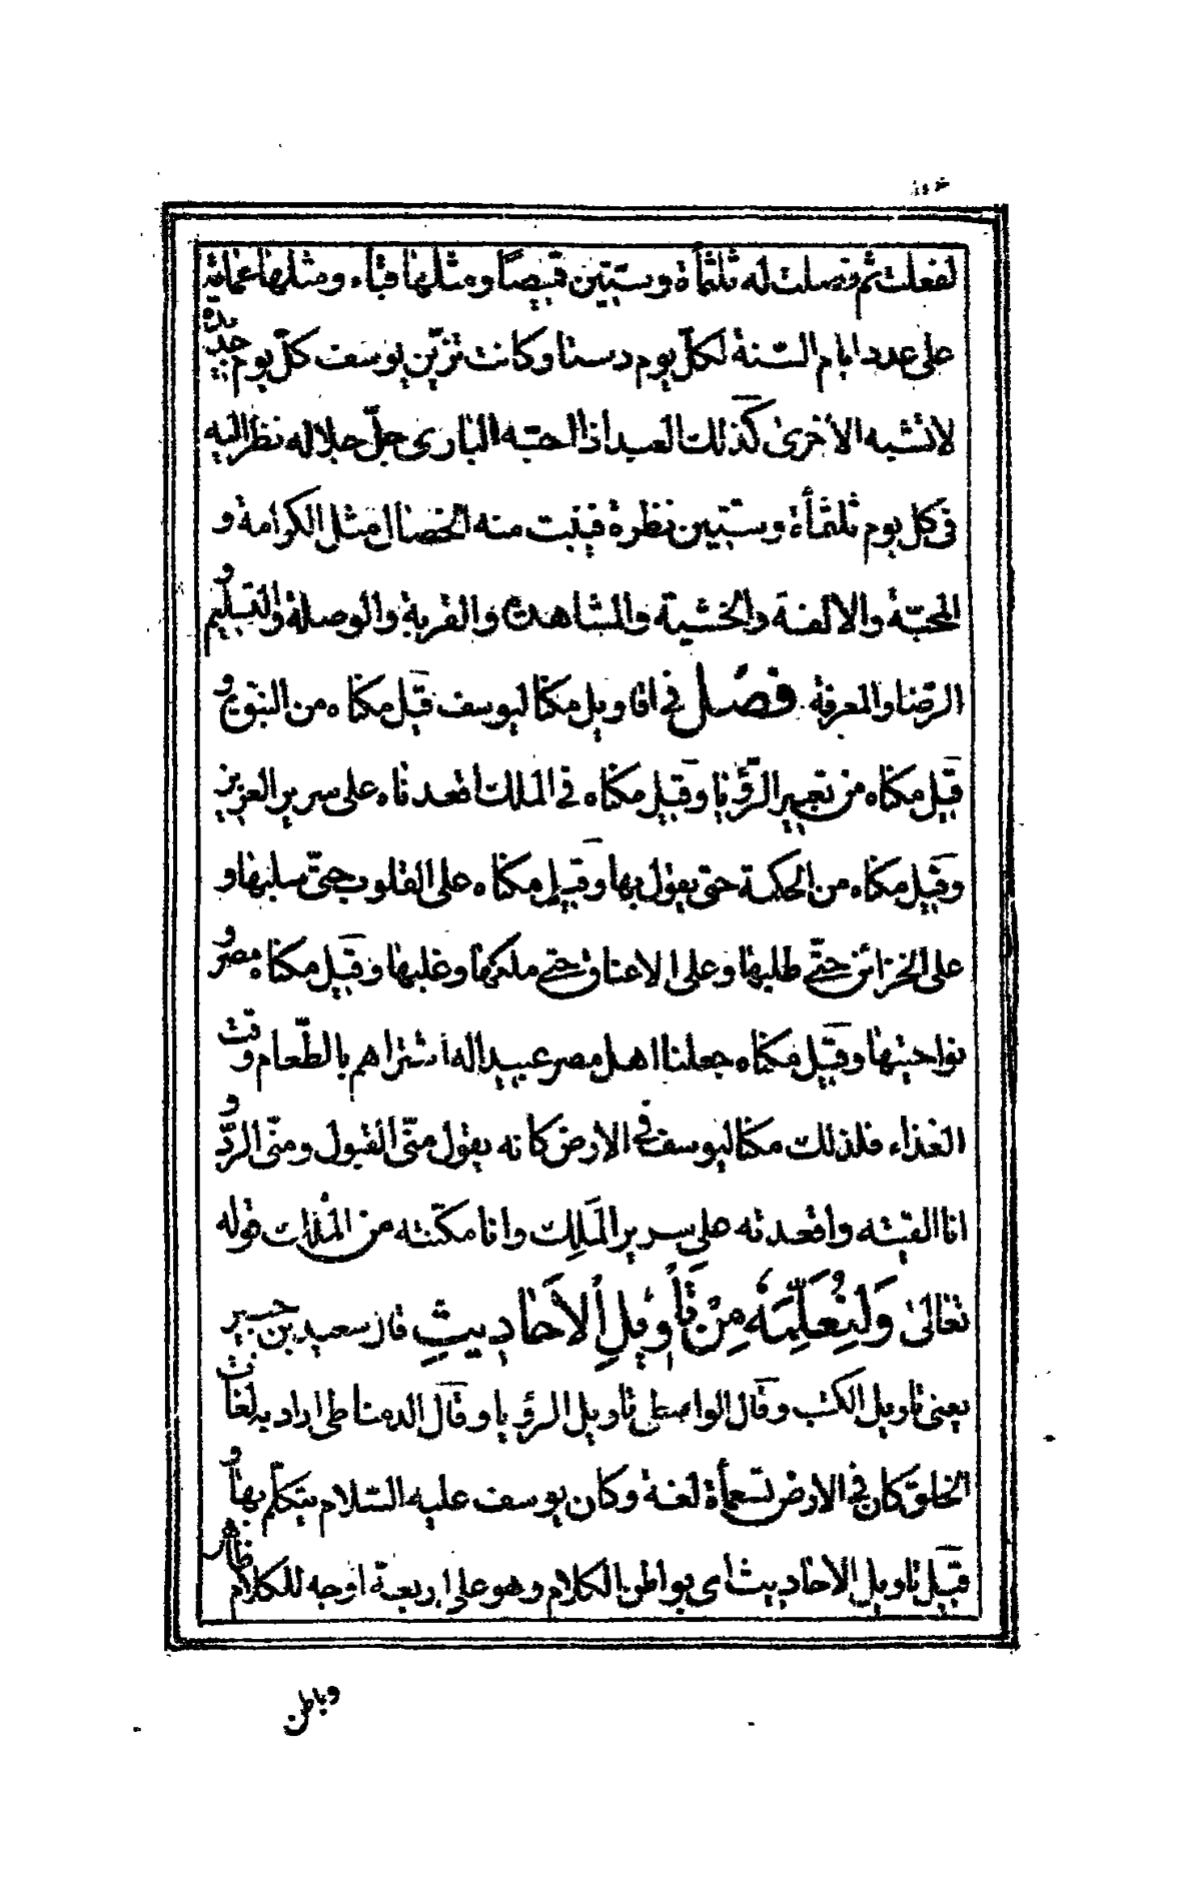 لفعلت ثم فصلت له ثلثمأة وستّين قميصًا ومثلها قباء ومثلها عمامة
على عدد ايام السّنة لكلّ يوم دستا وكانت تزيّن يوسف كلّ يوم جديدة
لا تشبه الأخرى كذلك العبد اذا احبّه البارى جلّ جلاله نظر اليه
فى كل يوم ثلثمأة وستين نظرة فينبت منه الخصال مثل الكرامة و
المحبّة والالفة والخشية والمشاهدة والقربة والوصلة والتسليم و
الرّضا والمعرفة فصل فى اقاويل مكنا ليوسف قيل مكناه من النبوة و
قيل مكناه من تعبير الرّؤيا وقيل مكناه فى الملك اقعدناه على سرير العزيز
وقيل مكناه من الحكمة حتى يقول بها وقيل مكناه على القلوب حتّى سلبها و
على الخزائن حتّى طلبها وعلى الاعناق حتى ملكها وغلبها وقيل مكناه مصر و
نواحيها وقيل مكناه جعلنا اهل مصر عبيدا له اشتراهم بالطّعام وقت
الغذاء فلذلك مكنا ليوسف فى الارض كانه يقول منّى القبول ومنّى الردّ و
انا القيته واقعدته على سرير الملك وانا مكنته من قوله
تعالى وَلِنُعَلِّمَهُ مِنْ تَأْوِيلِ الْأَحَادِيثِ قال سعيد بن جبير
يعنى تاويل الكتب وقال الواسطى تاويل الرؤيا وقال الدمناطى اراد به لغات
الخلق كان فى الارض تسعمأة لغة وكان يوسف عليه السّلام يتكلّم بها و
قيل تاويل الاحاديث اى بواطن الكلام وهو على اربعة اوجه للكلام ظاهر
وباطن